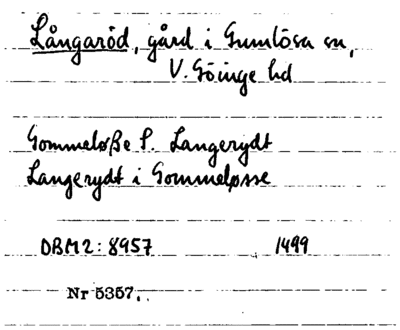 Långaröd, gård i Gumlösa sn,
V. Göinge hd
Gommeløße S. Langerydt
Langerydt i Gommeløsse
DBM2: 8957 1499
Nr 5357.